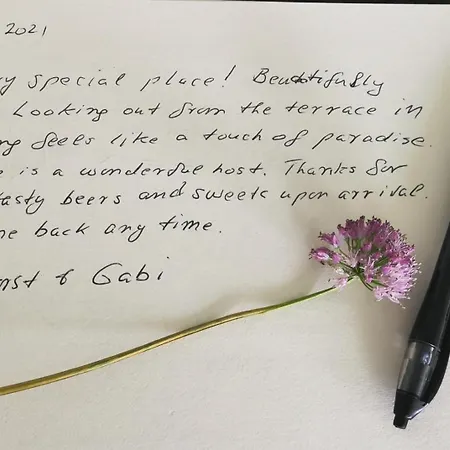 2021
special place! Beautifully
Looking out from the terrace in
feels like a touch of paradise.
is a wonderful host. Thanks for
tasty beers and sweets upon arrival.
back any time.
& Gabi